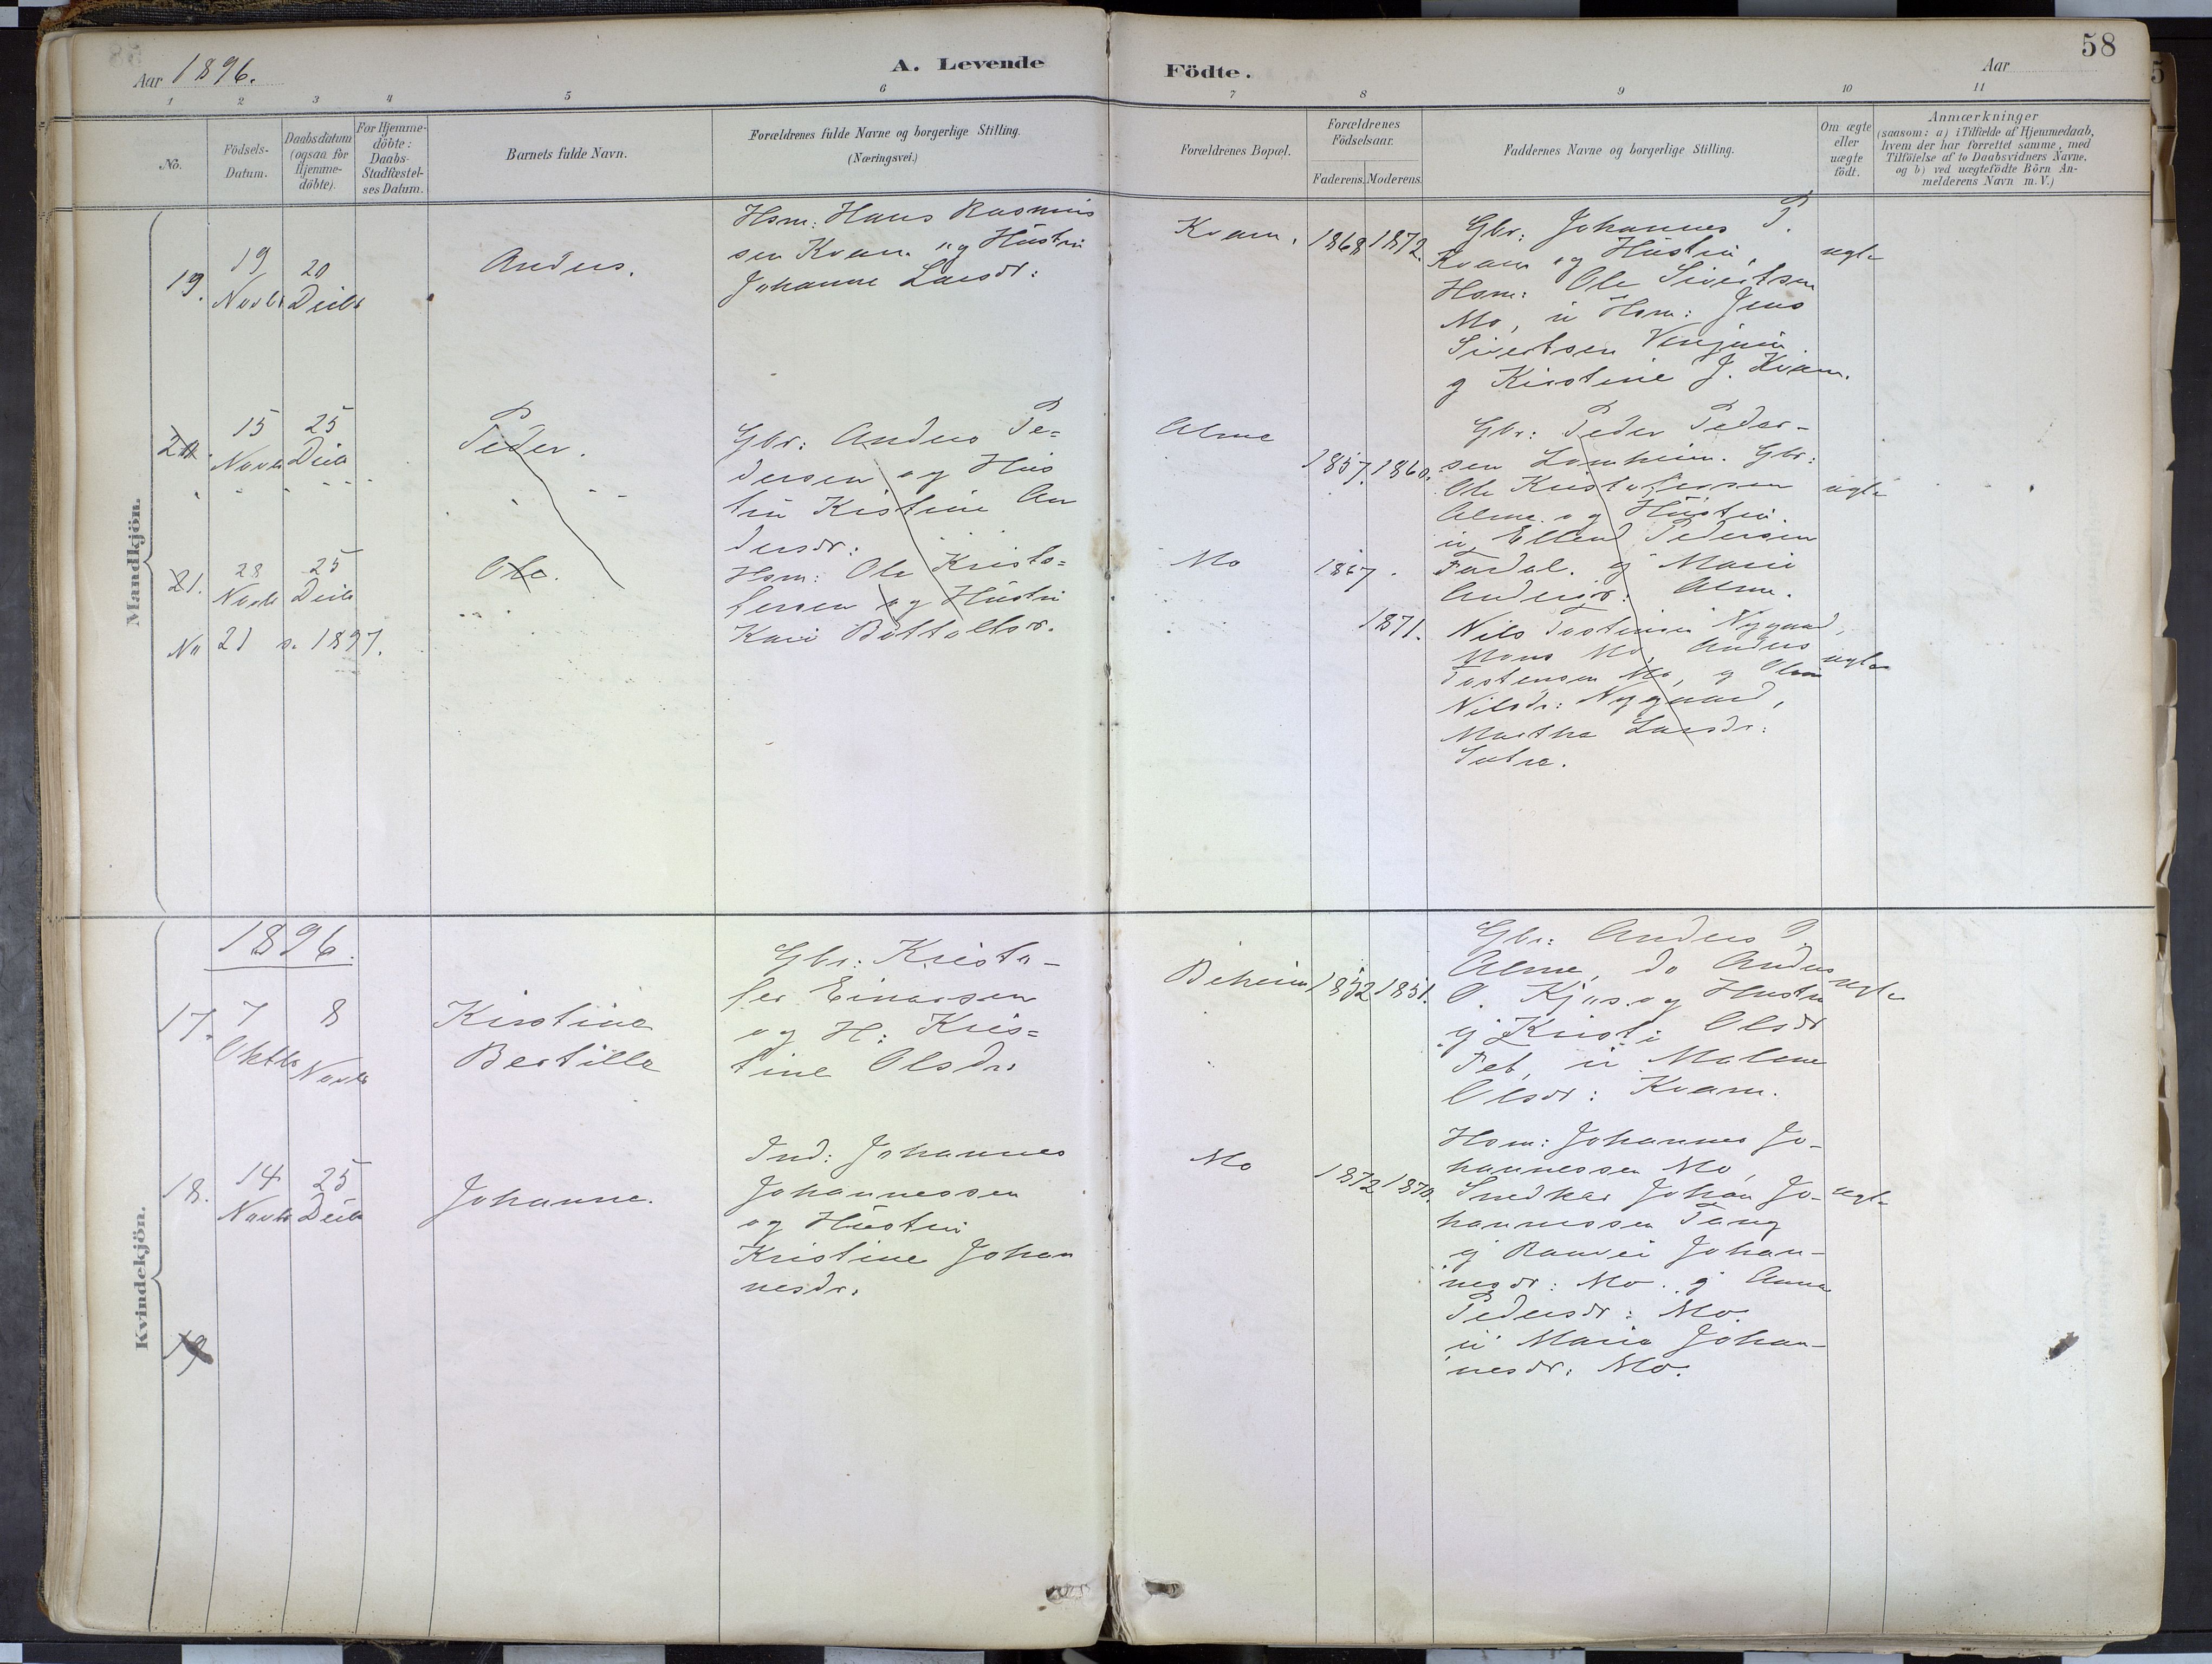 58
Aar 1896.
A. Levende Födte.
Aar
1 2 3 4 5 6 7 8 9 10 11
No.
Födsels-
Datum.
Daabsdatum
(ogsaa for
Hjemme-
döbte).
For Hjemme-
döbte:
Daabs-
Stadfæstel-
ses Datum.
Barnets fulde Navn.
Forældrenes fulde Navne og borgerlige Stilling.
(Næringsvei.)
Forældrenes Bopæl.
Forældrenes
Födselsaar.
Faderens. Moderens.
Faddernes Navne og borgerlige Stilling.
Om ægte
eller
uægte
födt.
Anmærkninger
(saasom: a) i Tilfælde af Hjemmedaab,
hvem der har forrettet samme, med
Tilföielse af to Daabsvidners Navne.
og b) ved uægtefödte Börn An-
melderens Navn m. V.)
Mandkjön.
19.
19
Novbr
20
Decbr
Anders.
Hsm: Hans Rasmus
sen Kvam og Hustru
Johanne Larsdr:
Kvam.
1868 1872.
Gbr: Johannes P.
Kvam og Hustru,
Hsm: Ole Sivertsen
Mo, u Hsm: Jens
Sivertsen
g Kirstine J. Kvam.
ægte
20.
15
Novbr
25
Decbr
Peder.
Gbr: Anders Pe=
dersen og Hus
tru Kistine An
dersdr:
Alme
1857. 1860.
Gbr: Peder Peder-
sen Lomheim. Gbr:
Ole Kristofersen
Alme og Hustru.
u Ellend Pedersen
Fardal. g Marie
Andersdr: Alme.
ægte
21.
28
Novbr
25
Decbr
Ole.
Hsm: Ole Kristo=
fersen og Hustru
Kari Bottolfsdr.
Mo
1867.
1871.
Nils Tostensen Nygaard,
Mons Mo, Anders
Tostensen Mo, g
Nilsdr: Nygaard,
Martha Larsdr:
ægte
No 21 s. 1897.
Kvindekjön.
1896.
17.
7
Oktbr
8
Novbr
Kirstine
Bertille
Gbr: Kristo-
fer Einarsen
og H: Kris=
tine Olsdr:
Beheim
1852 1851.
Gbr: Anders P.
Alme, do Anders
O. Kjos og Hustru
g Kristi Olsdr
Fet, u Malene
Olsdr: Kvam.
ægte
18.
14
Novbr
25
Decbr
Johanne.
Ind: Johannes
Johannessen
og Hustru
Kristine Johan
nesdr.
Mo
1872 1870.
Hsm: Johannes Jo-
hannessen Mo,
Snedker Johan Jo-
hannessen Tang
g Ranvei Johan-
nesdr: Mo. g Anna
Pedersdr: Mo.
u Maria Johan-
nesdr: Mo.
ægte
19